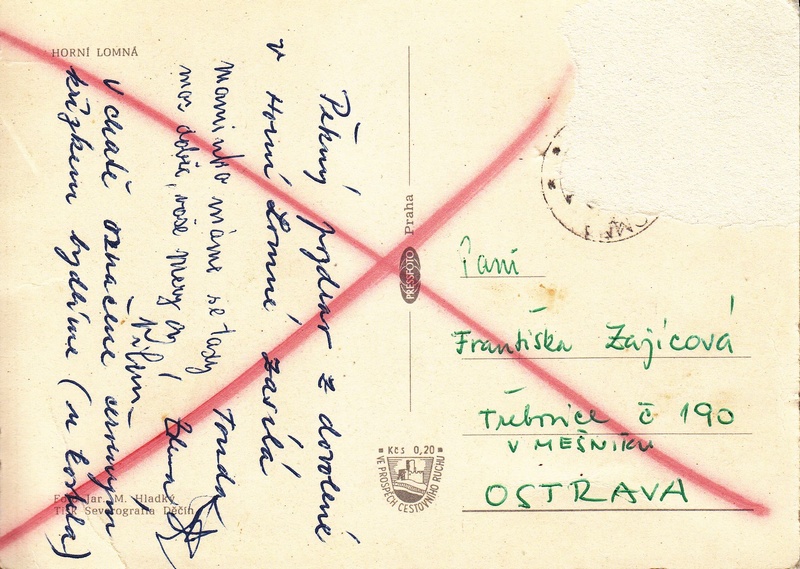 HORNÍ LOMNÁ
Pěkný pozdrav z dovolené
v Horní Lomné zasílá
Tonda
maminko máme se tady
moc dobře, vaše
v chatě označené červeným
křížkem bydlíme (u kostela)
Foto Jar. M. Hladký
Tisk Severografia Děčín
PRESSFOTO Praha
Kčs 0,20
VE PROSPĚCH CESTOVNÍHO RUCHU
Paní
Františka Zajícová
Třebovice č 190
V MEŠNIKU
OSTRAVA